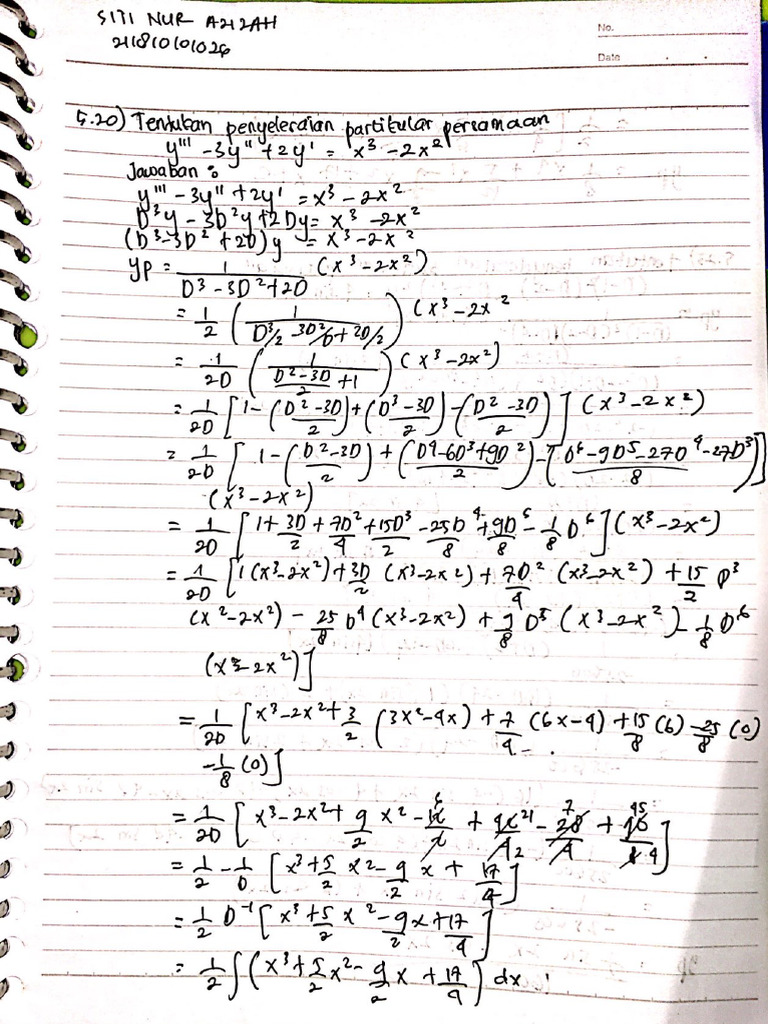 SITI NUR AZIZAH
No.
211810101026
Date
5.20) Tentukan penyelesaian partikular persamaan
y''' - 3y'' + 2y' = x³ - 2x²
Jawaban :
y''' - 3y'' + 2y' = x³ - 2x²
D³y - 3D²y + 2Dy = x³ - 2x²
(D³ - 3D² + 2D) y = x³ - 2x²
yp = 1/(D³ - 3D² + 2D) (x³ - 2x²)
= 1/2 (1/(D³/2 - 3D²/2 + 2D/2)) (x³ - 2x²
= 1/2D (1/((D² - 3D)/2 + 1)) (x³ - 2x²)
= 1/2D [1 - ((D² - 3D)/2) + ((D³ - 3D)/2) - ((D² - 3D)/2)] (x³ - 2x²)
= 1/2D [1 - ((D² - 3D)/2) + ((D⁴ - 6D³ + 9D²)/2) - [(D⁶ - 9D⁵ - 27D⁴ - 27D³)/8)]
(x³ - 2x²)
= 1/2D [1 + 3D/2 + 7D²/4 + 15D³/2 - 25D⁴/8 + 9D⁵/8 - 1/8 D⁶] (x³ - 2x²)
= 1/2D [1(x³ - 2x²) + 3D/2 (x³ - 2x²) + 7D²/4 (x³ - 2x²) + 15/2 D³
(x² - 2x²) - 25/8 D⁴ (x³ - 2x²) + 9/8 D⁵ (x³ - 2x²) - 1/8 D⁶
(x³ - 2x²)]
= 1/2D [x³ - 2x² + 3/2 (3x² - 4x) + 7/4 (6x - 4) + 15/8 (6) - 25/8 (0)
- 1/8 (0)]
= 1/2D [x³ - 2x² + 9/2 x² -
= 1/2 - 1/D [x³ + 5/2 x² - 9/2 x + 17/4]
= 1/2 D⁻¹ [x³ + 5/2 x² - 9/2 x + 17/4]
= 1/2 ∫ (x³ + 5/2 x² - 9/2 x + 17/4) dx